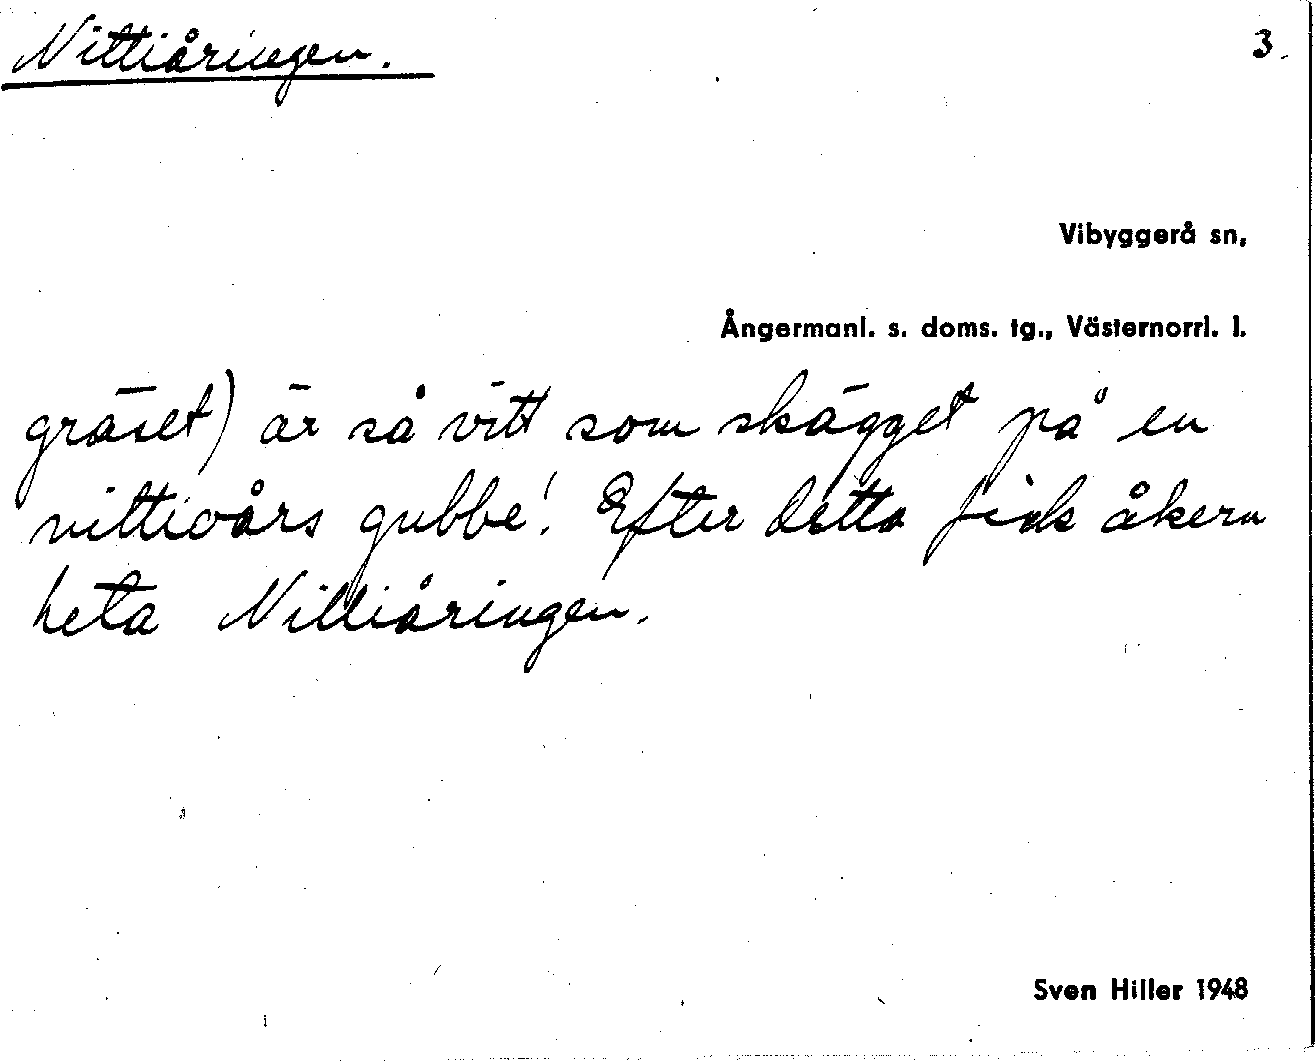 Nittiåringen.
3.
Vibyggerå sn,
Ångermanl. s. doms. tg., Västernorrl. l.
gräset) är så vitt som skägget på en
nittioårs gubbe! Efter detta fick åkern
heta Nittiåringen.
Sven Hiller 1948